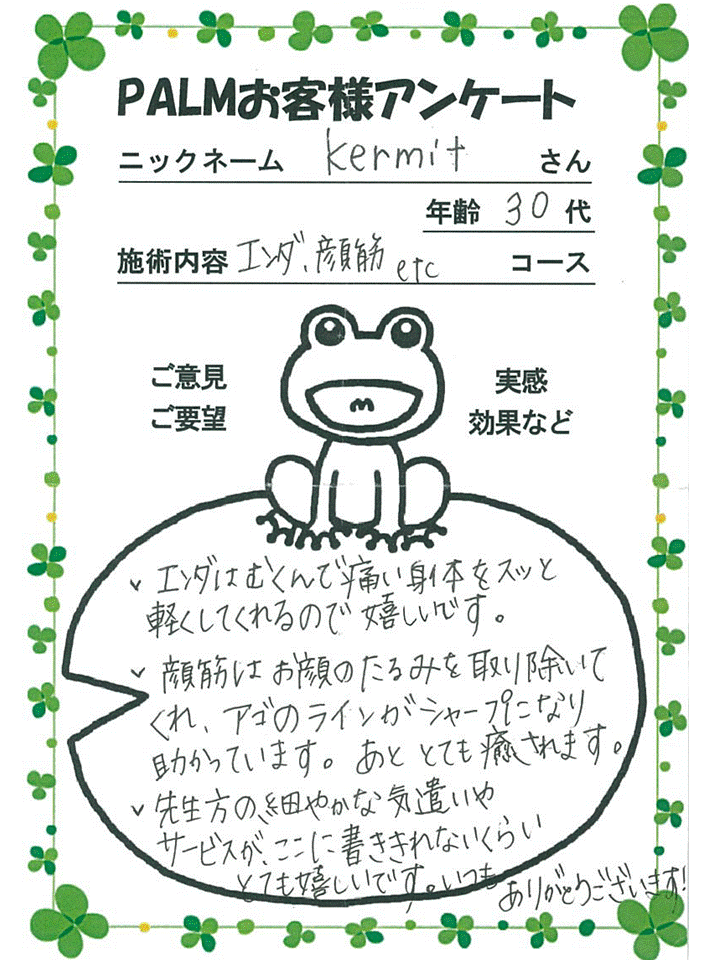 PALMお客様アンケート
ニックネーム kermit さん
年齢 30 代
施術内容 エンダ、顔筋 etc コース
ご意見
ご要望
実感
効果など
✓ エンダはむくんで痛い身体をスッと
軽くしてくれるので嬉しいです。
✓ 顔筋はお顔のたるみを取り除いて
くれ、アゴのラインがシャープになり
助かっています。あと とても癒されます。
✓ 先生方の、細やかな気遣いや
サービスが、ここに書ききれないくらい
とても嬉しいです。いつも ありがとうございます!